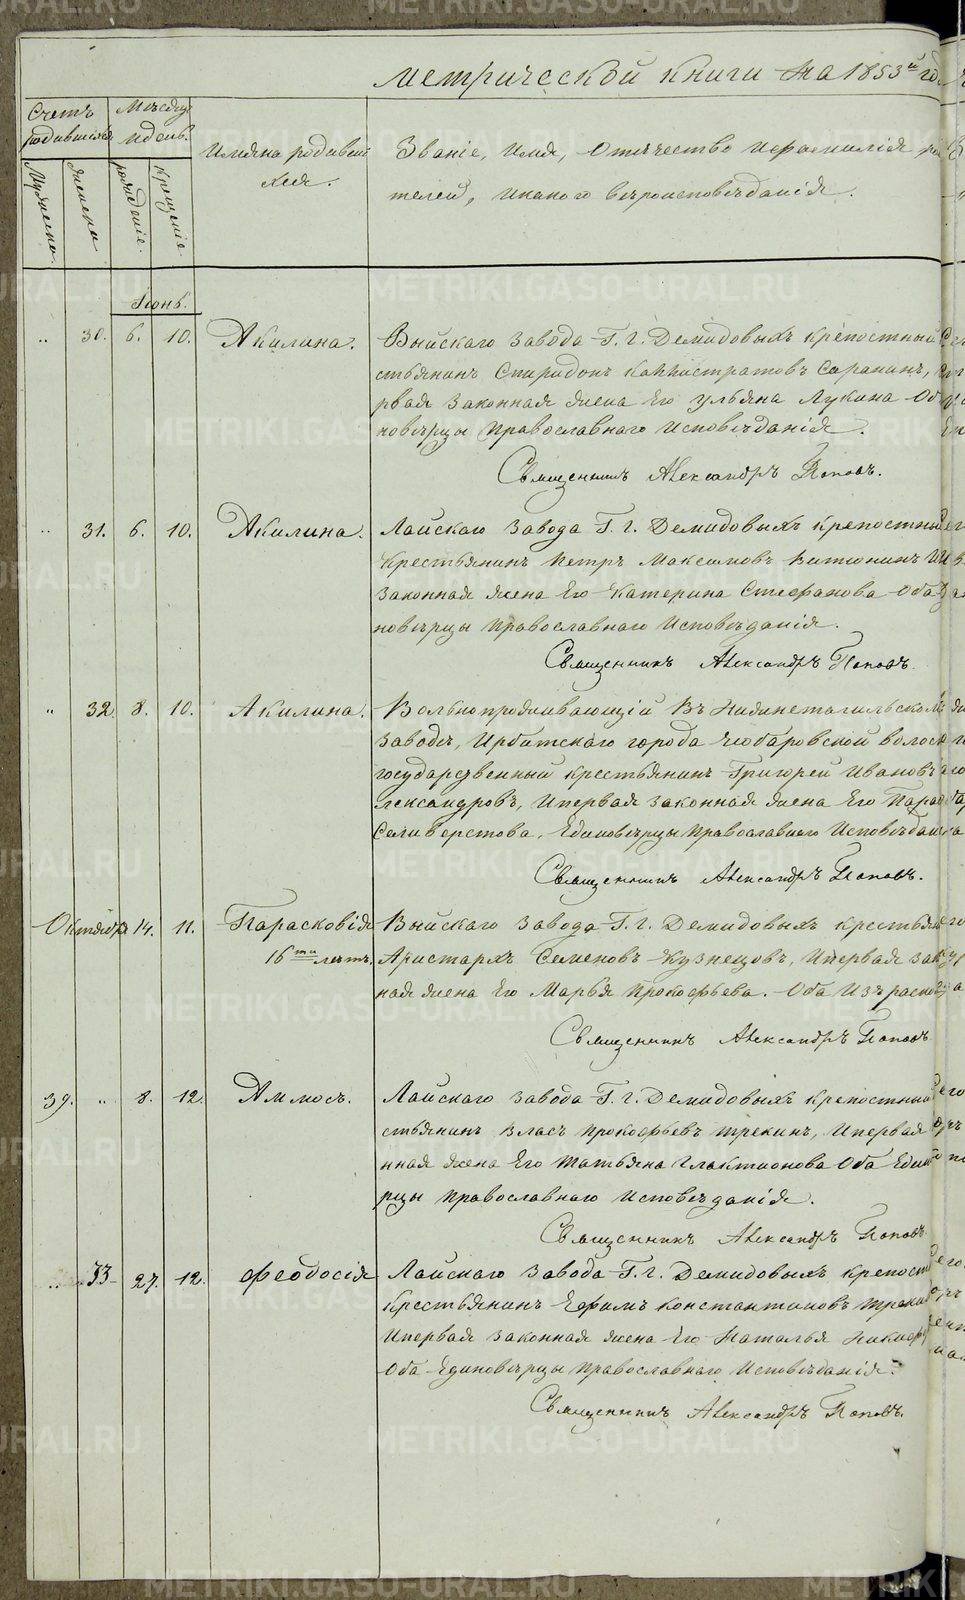 Метрической книги на 1853й год
Счетъ родившихся
Мѣсяцъ и день
Мужеска
Женска
рожденіе.
крещеніе
Имяна родивши
хся.
Званіе, Имя, Отчество и фамилія ро
телей, и какого вѣроисповѣданія.
Іюнь.
" 30. 6. 10. Акилина.
Выйскаго завода Г. г. Демидовыхъ крѣпостный
стьянинъ Спиридонъ Каллистратовъ
рвая законная жена Его Ульяна Лукина Об
новѣрцы православнаго исповѣданія.
Священникъ Александръ Поповъ.
" 31. 6. 10. Акилина.
Лайскаго завода Г. г. Демидовыхъ крѣпостный
крестьянинъ Петръ Максимовъ
законная жена Его Катерина Стефанова Оба
новѣрцы православнаго исповѣданія.
Священникъ Александръ Поповъ.
" 32. 8. 10. Акилина.
Вольнопроживающій Въ Нижнетагильскомъ
заводѣ, Ирбитскаго города Чубаровской волос
государственный крестьянинъ Григорей Ивановъ
лександровъ, И первая законная жена Его Парас
Селиверстова, Единовѣрцы православнаго исповѣдан
Священникъ Александръ Поповъ.
Октября 14. 11. Парасковія
16ти лѣтъ.
Выйскаго завода Г. г. Демидовыхъ крестьян
Аристархъ Семеновъ Кузнецовъ, И первая зак
ная жена Его Марья Прокофьева. Оба Изъ раскол
Священникъ Александръ Поповъ
39. " 8. 12. Аммосъ.
Лайскаго завода Г. г. Демидовыхъ крѣпостный
стьянинъ Власъ Прокофьевъ Трекинъ, И первая
нная жена Его Татьяна Глактионова Оба Един
рцы православнаго исповѣданія.
Священникъ Александръ Поповъ
" 33 27. 12. Феодосія
Лайскаго завода Г. г. Демидовыхъ крѣпост
крестьянинъ Ефимъ Константиновъ Треки
И первая законная жена Его Наталья Никиф
Оба Единовѣрцы православнаго исповѣданія.
Священникъ Александръ Поповъ.
METRIKI.GASO-URAL.RU